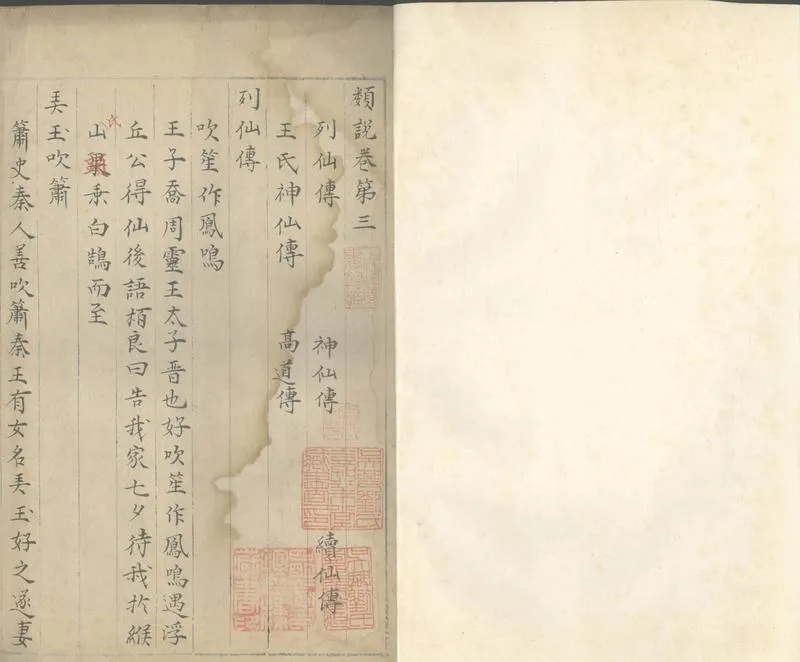 類說卷第三
列仙傳 神仙傳 續仙傳
王氏神仙傳 髙道傳
列仙傳
吹笙作鳳鳴
王子喬周靈王太子晋也好吹笙作鳳鳴遇浮
丘公得仙後語栢良曰告我家七夕待我扵緱
氏山乗白鵠而至
弄玉吹簫
簫史秦人善吹簫秦王有女名弄玉好之遂妻
吳興劉氏嘉業堂藏書印